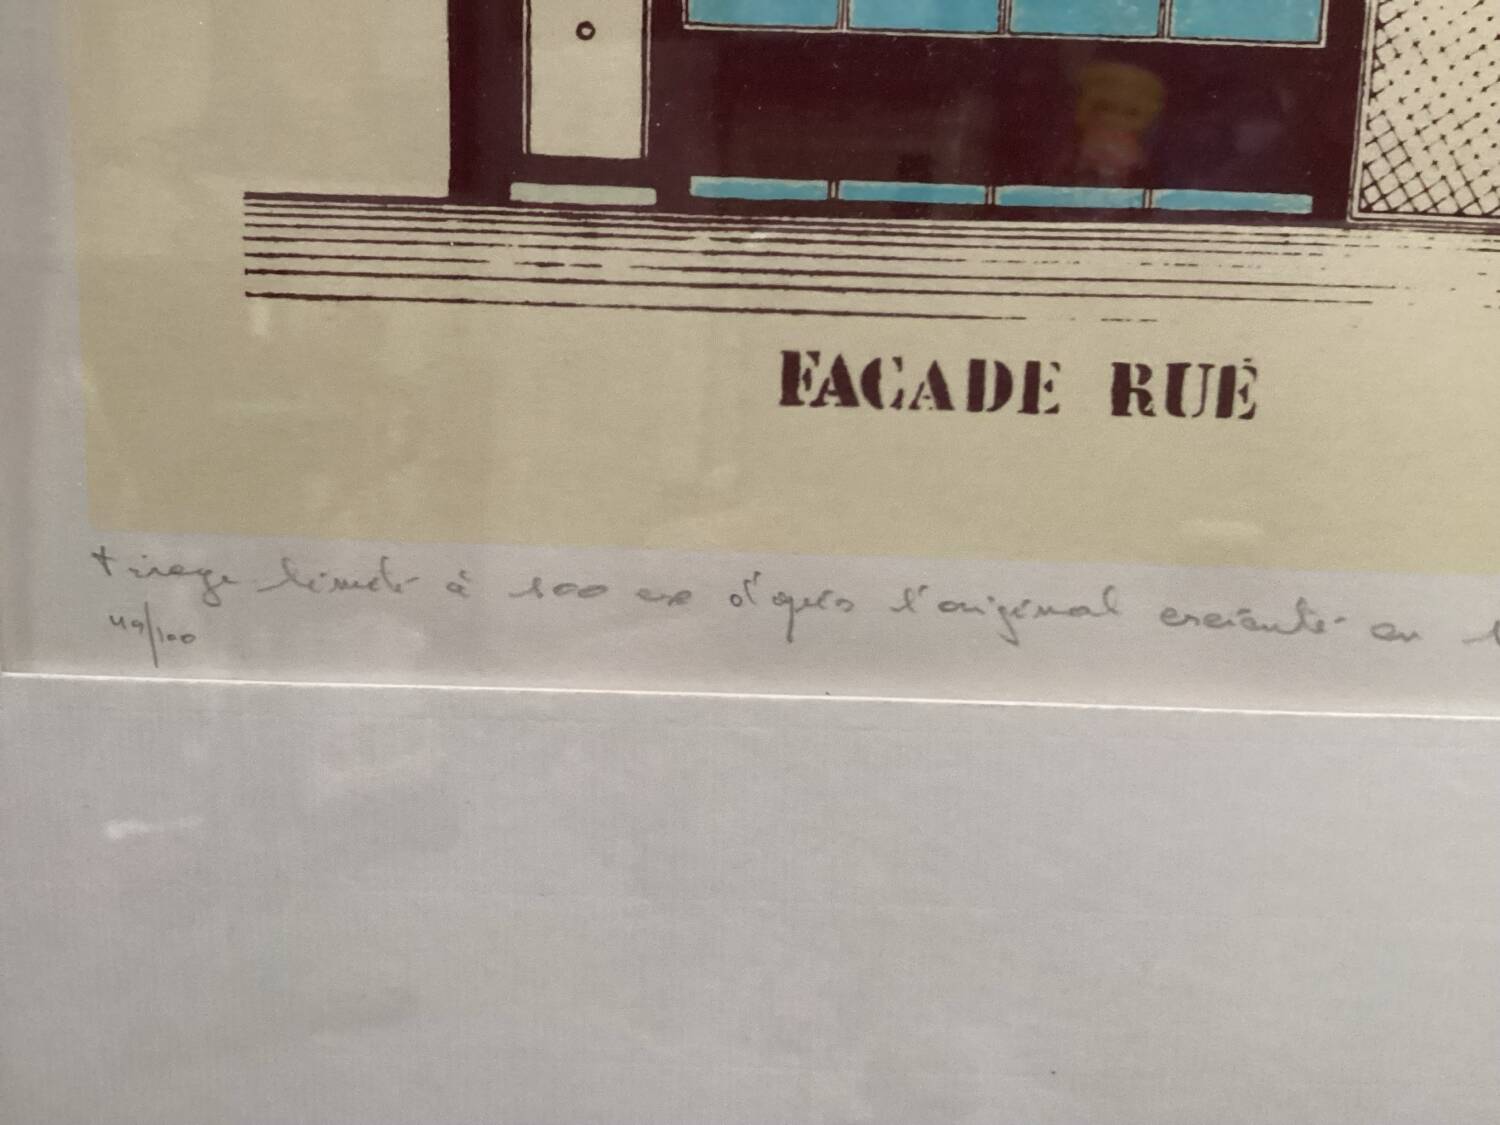 FACADE RUE
tirage limité à 100 ex d'après l'original exécuté en
49/100